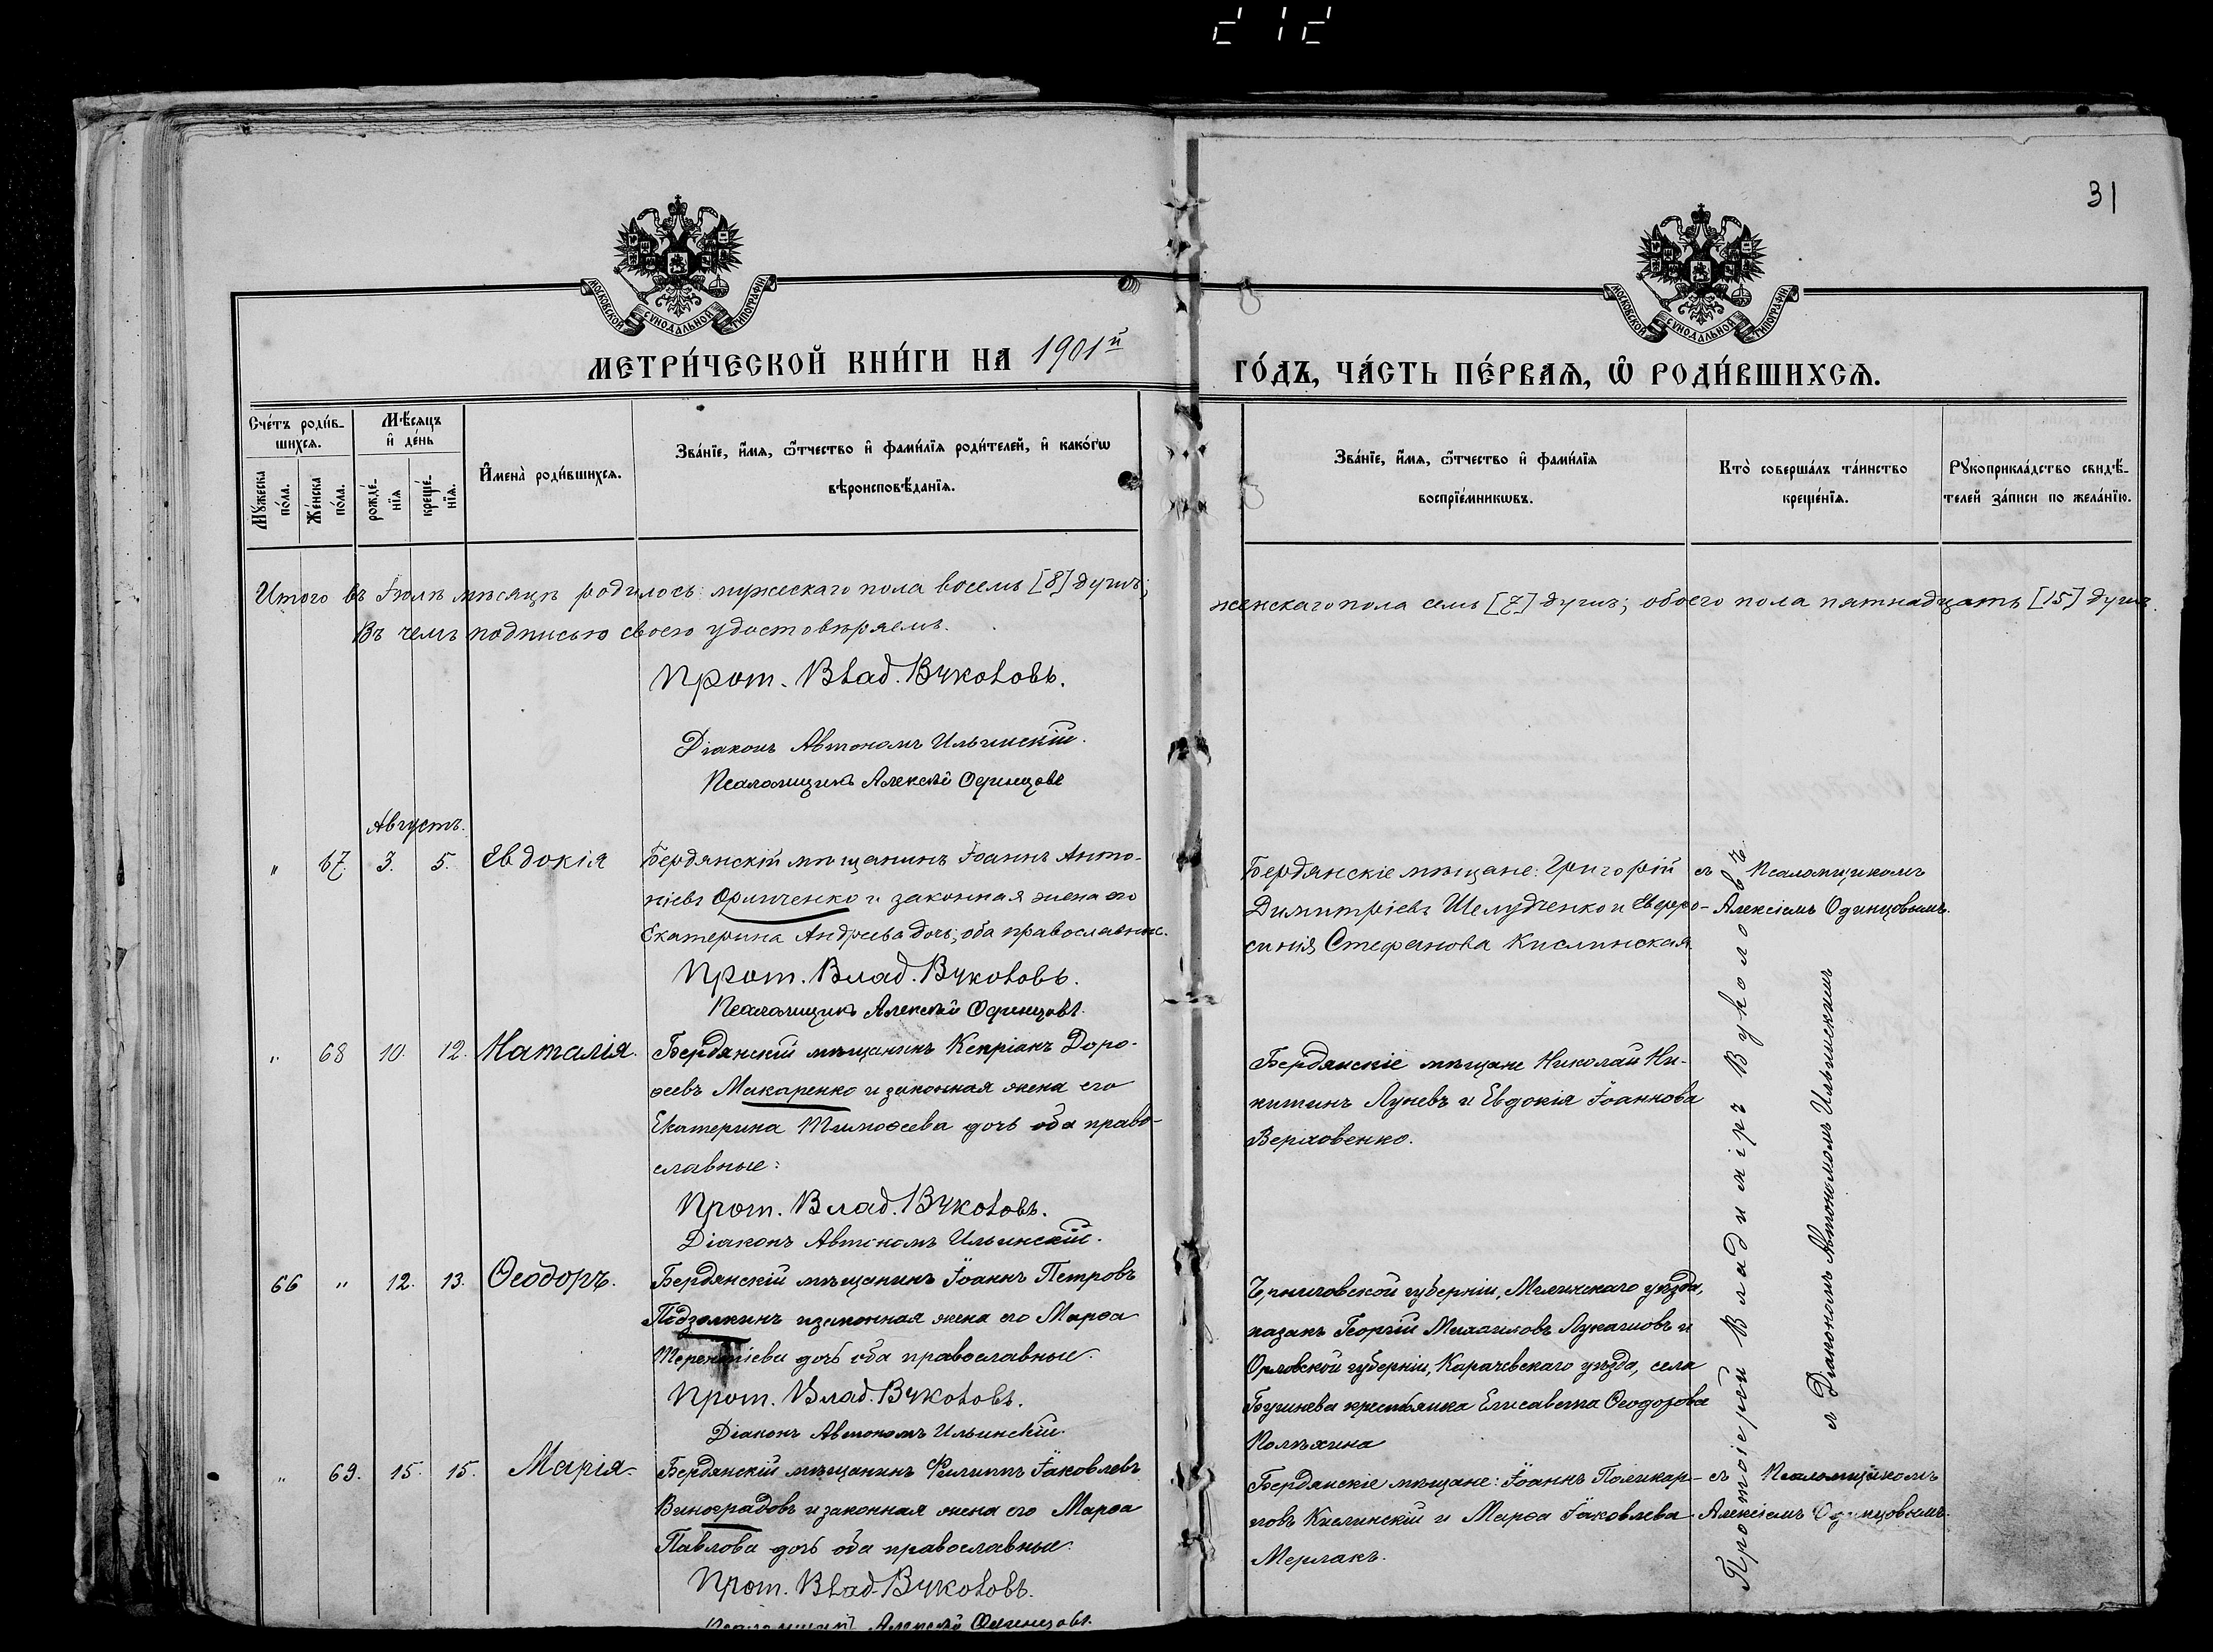 31
МОСКОВСКОЙ СѴНОДАЛЬНОЙ ТИПОГРАФІИ
МОСКОВСКОЙ СѴНОДАЛЬНОЙ ТИПОГРАФІИ
МЕТРИ́ЧЕСКОЙ КНИ́ГИ НА 1901й
ГО́ДЪ, ЧА́СТЬ ПЕ́РВАѦ, Ѡ РОДИ́ВШИХСѦ.
Сче́тъ роди́в-
шихсѧ.
Мꙋжеска по́ла.
Же́нска по́ла.
Мѣ́сѧцъ
и҆ де́нь
рожде́-
нїѧ
креще́-
нїѧ.
И҆мена̀ роди́вшихсѧ.
Зва́нїе, и҆́мѧ, ѻ҆́тчество и҆ фами́лїѧ роди́телей, и҆ како́гѡ
вѣроисповѣ́данїѧ.
Зва́нїе, и҆́мѧ, ѻ҆́тчество и҆ фами́лїѧ
воспрїе́мникѡвъ.
Кто̀ соверша́лъ та́инство
креще́нїѧ.
Рꙋкоприкла́дство свидѣ́-
телей за́писи по жела́нїю.
Итого въ Іюлѣ мѣсяцѣ родилось: мужескаго пола восемь [8] душъ;
женскаго пола семь [7] душъ; обоего пола пятнадцать [15] душъ.
Въ чемъ подписью своею удостовѣряемъ.
Прот. Влад. Вуколовъ.
Діаконъ Автономъ Ильинскій.
Псаломщикъ Алексѣй Одинцовъ
Августъ.
" 67. 3. 5. Евдокія
Бердянскій мѣщанинъ Іоаннъ Анто-
ніевъ Ориченко и законная жена его
Екатерина Андреева дочь; оба православные.
Прот. Влад. Вуколовъ.
Псаломщикъ Алексѣй Одинцовъ.
Бердянскіе мѣщане: Григорій
Димитріевъ Шелудченко и Евфро-
синія Стефанова Кислинская
съ Псаломщикомъ
Алексіемъ Одинцовымъ.
" 68 10. 12. Наталія.
Бердянскій мѣщанинъ Кипріанъ Доро-
ѳеевъ Макаренко и законная жена его
Екатерина Тимоѳеева дочь оба право-
славные:
Прот. Влад. Вуколовъ.
Діаконъ Автономъ Ильинскій.
Бердянскіе мѣщане Николай Ни-
китинъ Луневъ и Евдокія Іоаннова
Верховенко.
66 " 12. 13. Ѳеодоръ.
Бердянскій мѣщанинъ Іоаннъ Петровъ
Подзолкинъ и законная жена его Марѳа
Терентіева дочь оба православные.
Прот. Влад. Вуколовъ.
Діаконъ Автономъ Ильинскій.
Черниговской губерніи, Мглинскаго уѣзда,
казакъ Георгій Михаиловъ Лукашовъ и
Орловской губерніи, Карачевскаго уѣзда, села
крестьянка Елисавета Ѳеодорова
Полѣхина
" 69. 15. 15. Марія.
Бердянскій мѣщанинъ Филиппъ Іаковлевъ
Виноградовъ и законная жена его Марѳа
Павлова дочь оба православные.
Прот. Влад. Вуколовъ.
Псаломщикъ Алексѣй Одинцовъ.
Бердянскіе мѣщане: Іоаннъ Поликар-
повъ Кислинскій и Марѳа Іаковлева
Мерлакъ.
съ Псаломщикомъ
Алексіемъ Одинцовымъ.
Протоіерей Владиміръ Вуколовъ
съ Діакономъ Автономомъ Ильинскимъ